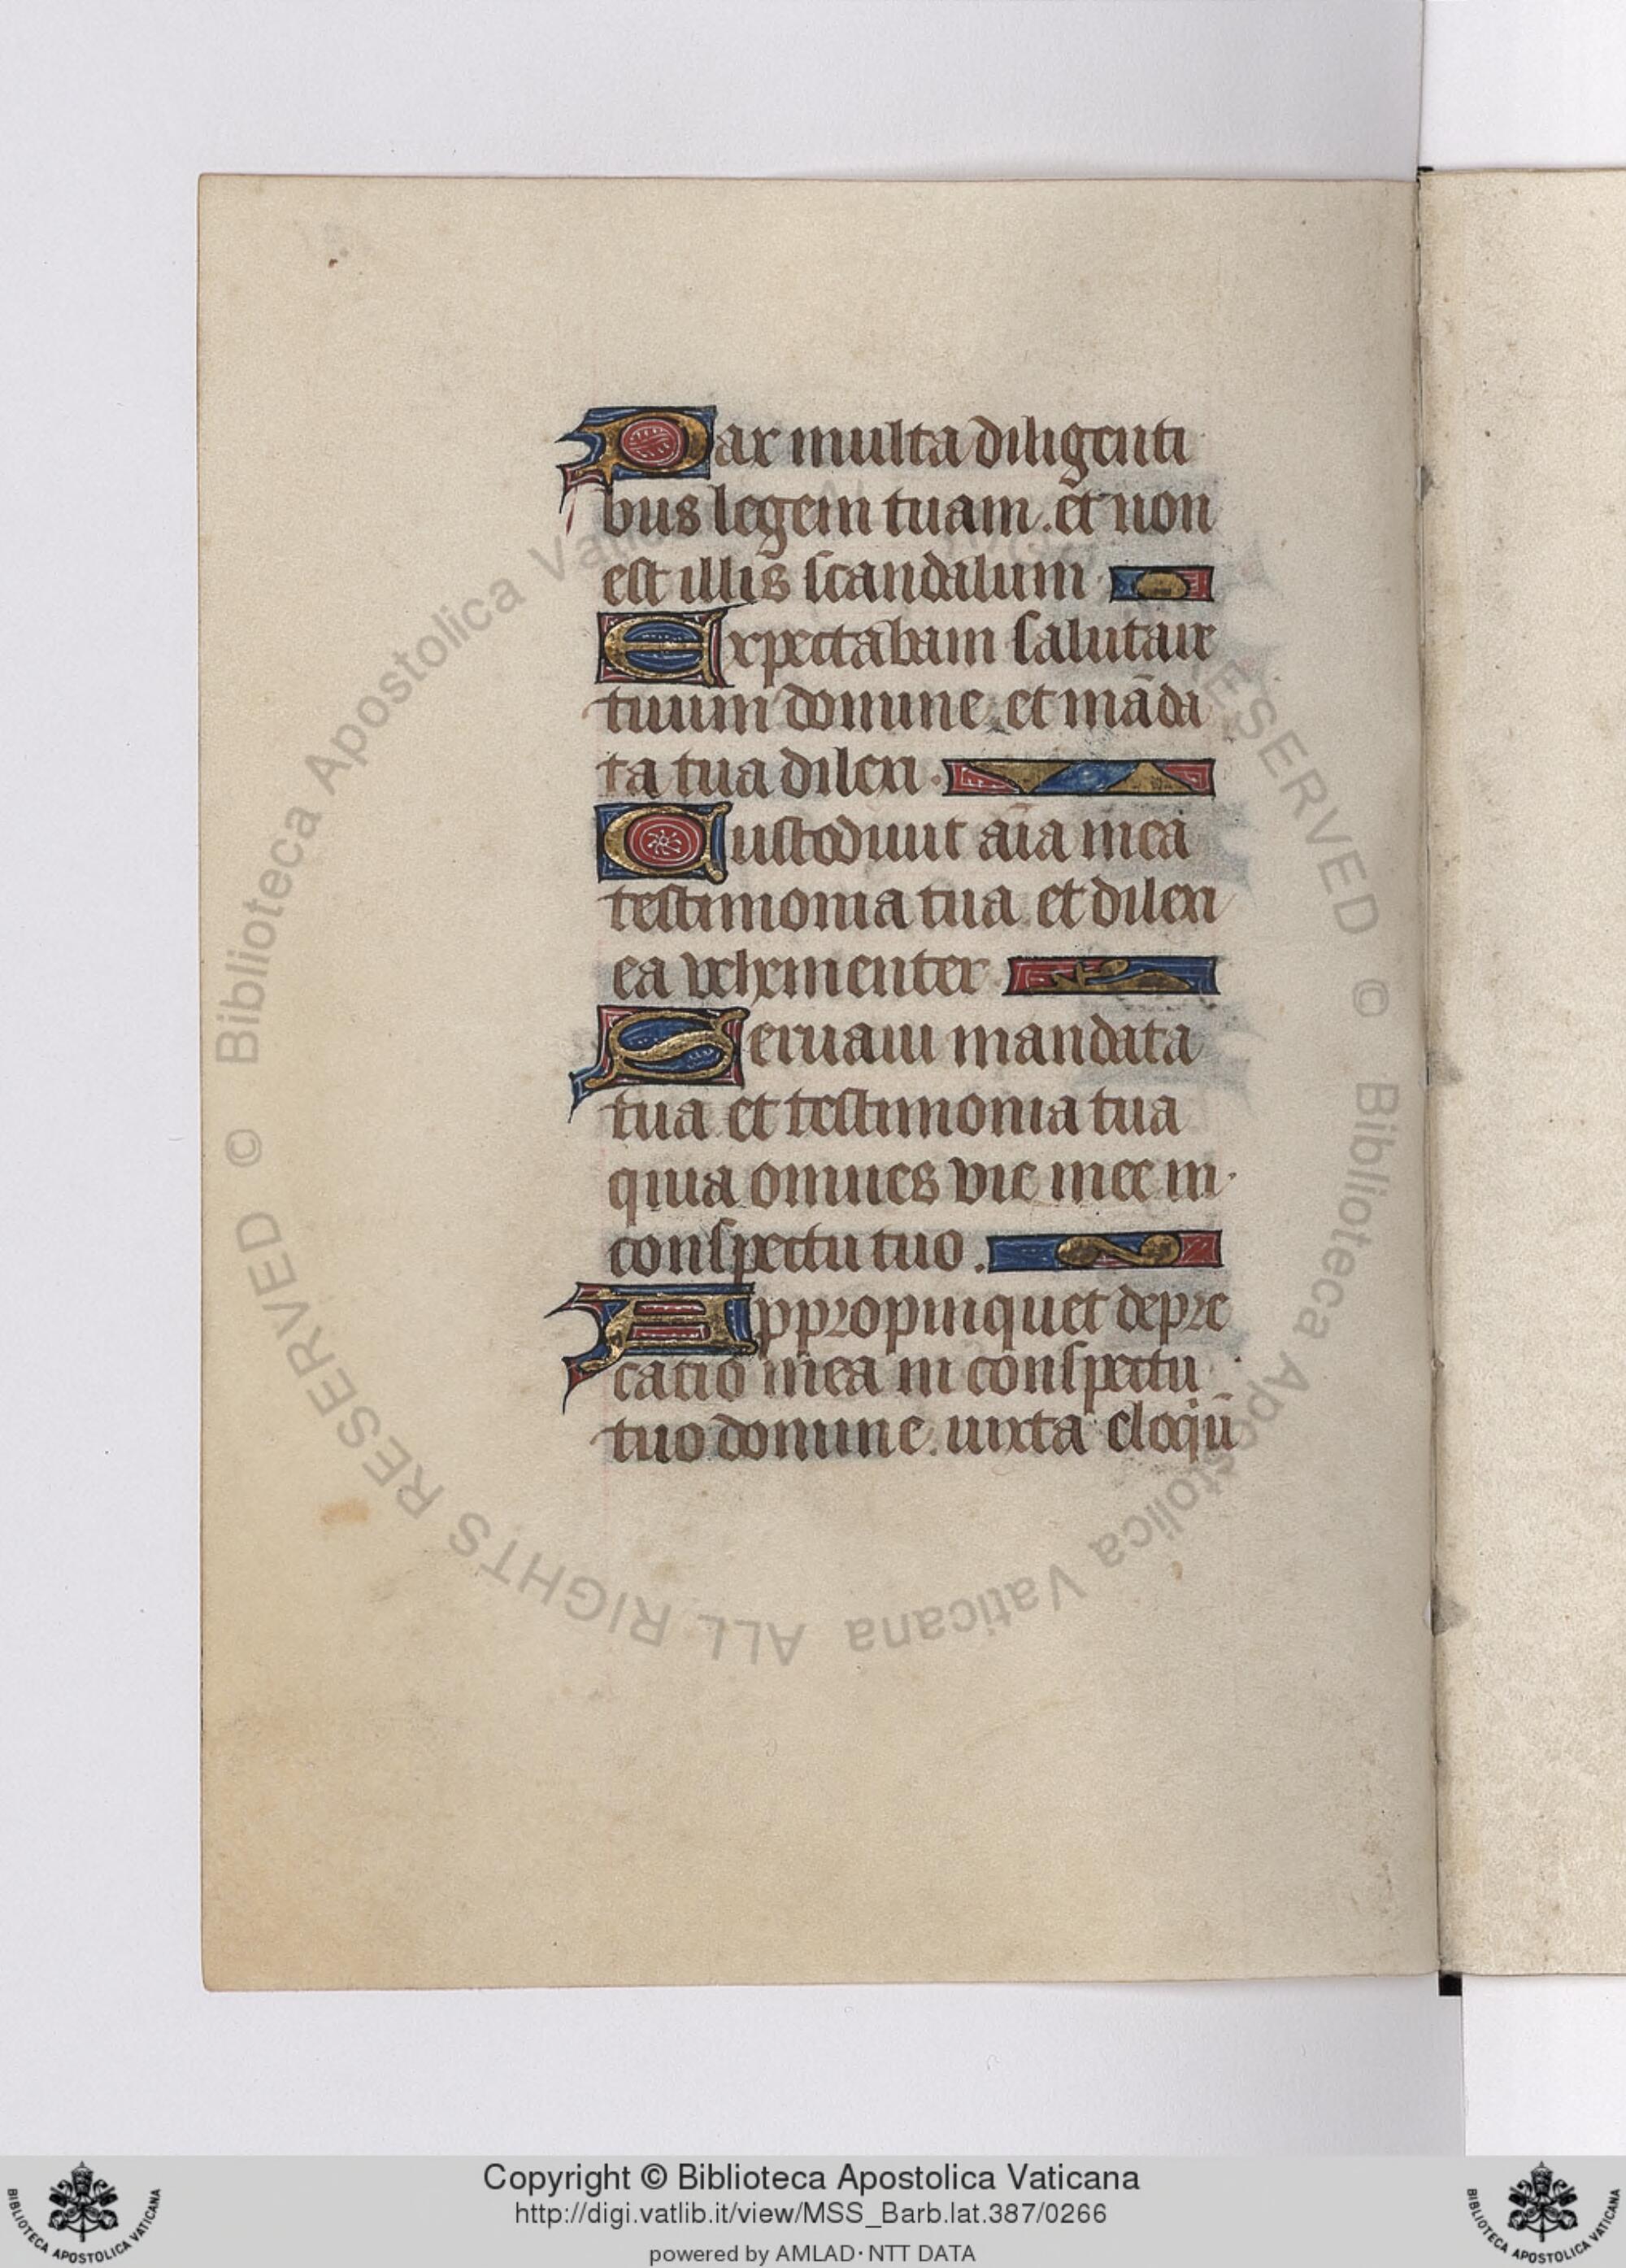 Pax multa diligenti
bus legem tuam. et non
est illis scandalum
Expectabam salutare
tuum domine. et māda
ta tua dilexi.
Custodiuit aīa mea
testimonia tua. et dilexi
ea vehementer.
Seruaui mandata
tua et testimonia tua
quia omnes vie mee in
conspectu tuo.
Appropinquet depre
catio mea in conspectu
tuo domine. iuxta eloqū
© Biblioteca Apostolica Vaticana
ALL RIGHTS RESERVED
© Biblioteca Apostolica Vaticana
ALL RIGHTS RESERVED
Copyright © Biblioteca Apostolica Vaticana
http://digi.vatlib.it/view/MSS_Barb.lat.387/0266
powered by AMLAD · NTT DATA
BIBLIOTECA APOSTOLICA VATICANA
BIBLIOTECA APOSTOLICA VATICANA